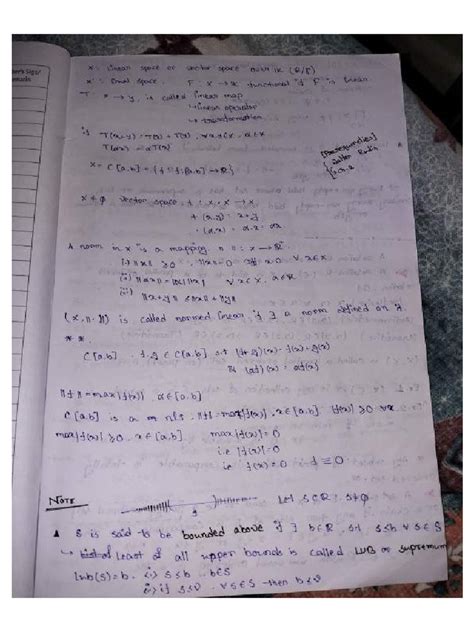 X: Linear space or vector space over K (R/C)
X: Small space. F: X → K functional if F is linear
T: X → Y, is called linear map
↳ linear operator
↳ transformation
if T(x+y) = T(x)+T(y), ∀ x,y ∈ X, α ∈ K
T(αx) = αT(x)
X = C[a,b] = {f: [a,b] → R}
Walter Rudin
X ≠ φ vector space, + : X × X → X
+ (x,y) = x+y
· (α,x) = α.x = αx
A norm in X is a mapping || || : X → R
(i) ||x|| ≥ 0, ||x|| = 0 iff x=0 ∀ x∈X
(ii) ||αx|| = |α| ||x|| ∀ x∈X, α∈K
(iii) ||x+y|| ≤ ||x|| + ||y||
(X, || ||) is called normed linear if ∃ a norm defined on
C[a,b] f,g ∈ C[a,b] s.t (f+g)(x) = f(x)+g(x)
& (αf)(x) = αf(x)
||f|| = max|f(x)| x∈[a,b]
C[a,b] is a nls, ||f|| = max|f(x)|, x∈[a,b] |f(x)| ≥ 0 ∀x
max|f(x)| ≥ 0, x∈[a,b] max|f(x)| = 0
i.e |f(x)| = 0
ie f(x) = 0 i.e f ≡ 0
NOTE
Let S⊂R, S≠φ
S is said to be bounded above if ∃ b∈R, s.t s≤b ∀ s∈S
↳ Least of all upper bounds is called LUB or supremum
lub(S)=b. i) s≤b
ii) if s≤v ∀ s∈S then b≤v